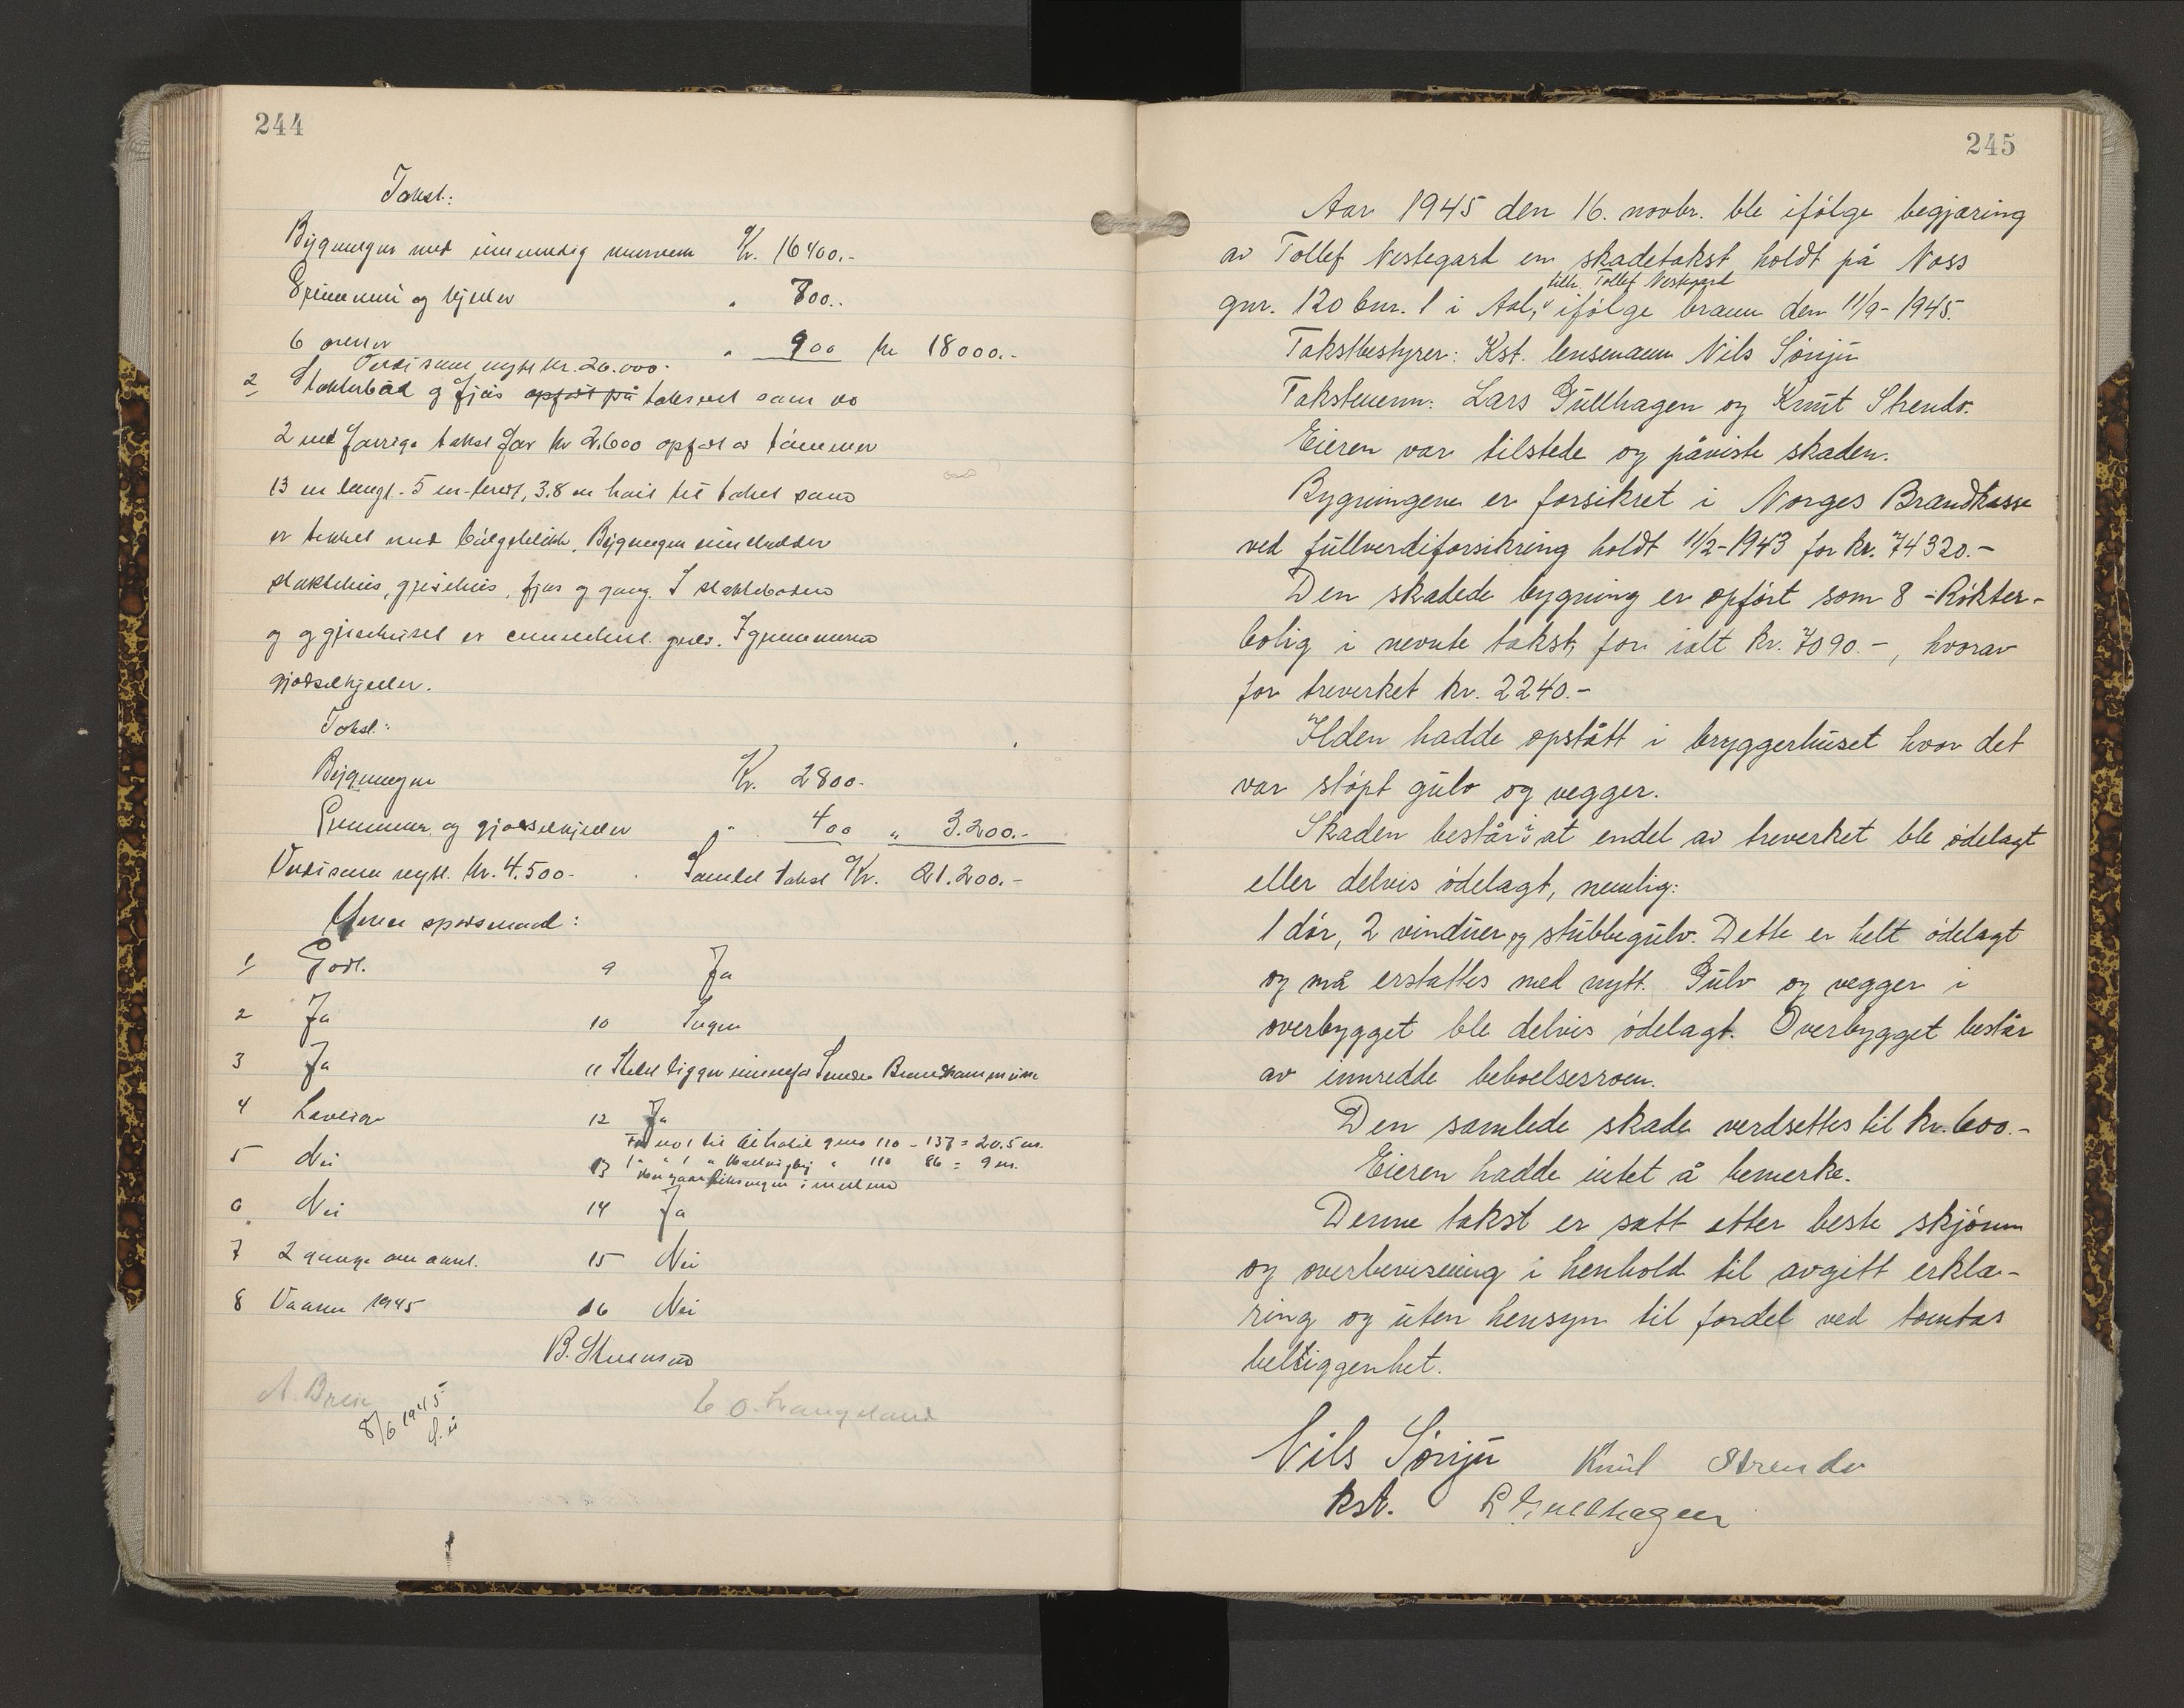 244
Takst:
Bygningen med innvendig murverk Kr. 16400.-
Grunnmur og kjeller " 800.-
6 ovner " 900 kr 18000.-
Verdi som nytt kr. 20.000.-
2 Slakterbod og fjøs opført på taksert som no
2 ved forrige takst for kr 2.600 opført av tømmer
13 m langt - 5 m bredt, 3.8 m høit til taket som
er tekket med bølgeblikk. Bygningen inneholder
slaktehus, grisehus, fjøs og gang. I slakteboden
og grisehuset er cementert gulv. I grunnmuren
gjødselkjeller.
Takst:
Bygningen Kr. 2800.-
Grunnmur og gjødselkjeller " 400 " 3.200.-
Verdi som nytt kr. 4.500.- Samlet takst Kr. 21.200.-
spørsmaal:
1 Godt. 9 Ja
2 Ja 10 Ingen
3 Ja 11 Stedet ligger innenfor
4 Laveier 12 Ja
no 1 til Ål hotel gnr 110 - 137 = 20.5 m.
5 Nei 13 1 " 1 " " 110 86 = 9 m.
imellem
6 Nei 14 Ja
7 2 gange om aaret. 15 Nei
8 Vaaren 1945 16 Nei
B.
A. Brein E O. Langeland
8/6 1945
245
Aar 1945 den 16. novbr. ble ifølge begjæring
av Tollef Vestegard en skadetakst holdt på Noss
tilh. Tollef Vestegard
gnr. 120 bnr. 1 i Aal, ifølge brann den 11/9-1945.
Takstbestyrer: Kst. lensmann Nils Sønju
Takstmenn: Lars Gullhagen og Knut Strendo.
Eieren var tilstede og påviste skaden.
Bygningene er forsikret i Norges Brandkasse
ved fullverdiforsikring holdt 11/2-1943 for kr. 74320.-
Den skadede bygning er opført som 8 - Røkter-
bolig i nevnte takst, for ialt kr. 7090.-, hvorav
for treverket kr. 2240.-
Ilden hadde opstått i bryggerhuset hvor det
var støpt gulv og vegger.
Skaden består i at endel av treverket ble ødelagt
eller delvis ødelagt, nemlig:
1 dør, 2 vinduer og stubbegulv. Dette er helt ødelagt
og må erstattes med nytt. Gulv og vegger i
overbygget ble delvis ødelagt. Overbygget består
av innredde beboelsesrom.
Den samlede skade verdsettes til kr. 600.-
Eieren hadde intet å bemerke.
Denne takst er satt etter beste skjønn
og overbevisning i henhold til avgitt erklæ-
ring og uten hensyn til fordel ved tomtas
beliggenhet.
Nils Sønju Knut Strendo
kst. L Gullhagen